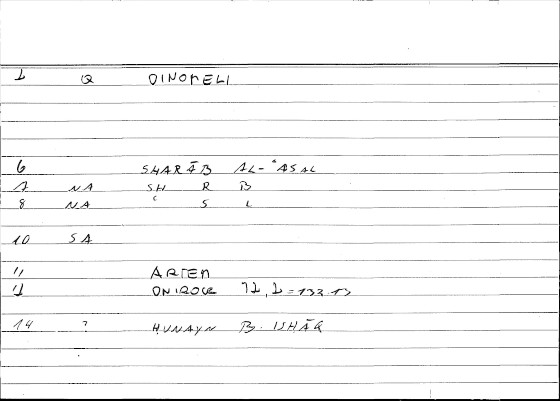 1 Q OINOMELI
6 SHARĀB AL-ʿASAL
7 NA SH R B
8 NA ʿ S L
10 SA
11 ARTEM
ONIROCR 72, 2 = 133.13
14 ? HUNAYN B. ISHĀQ